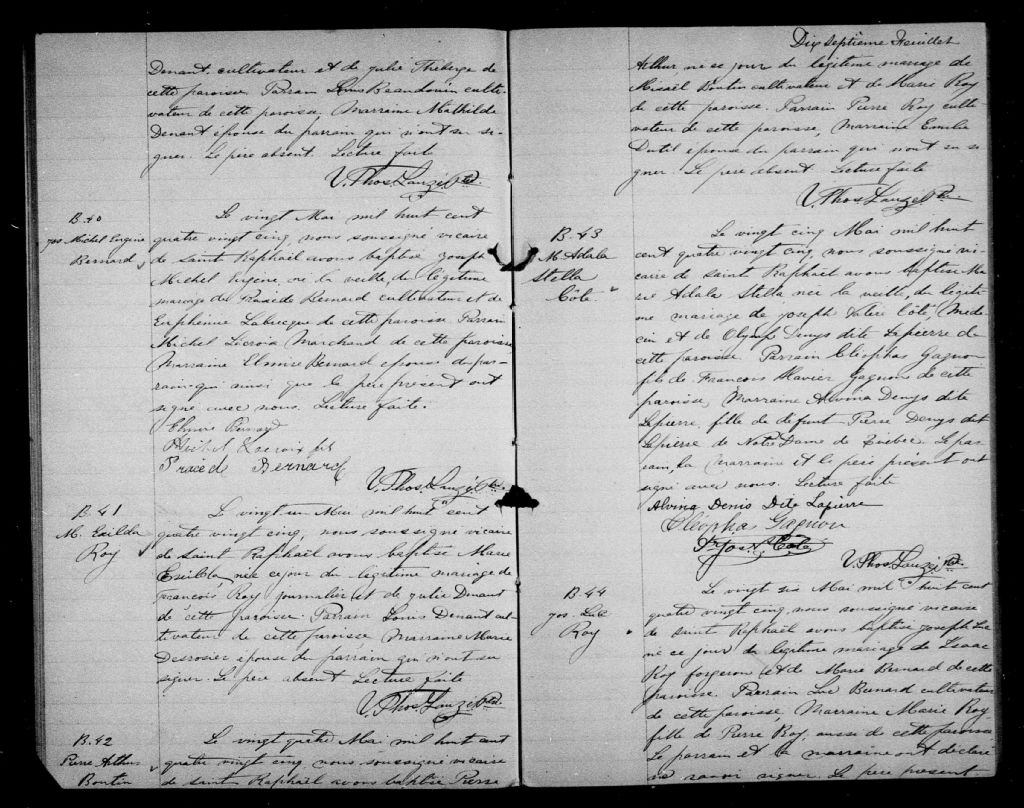 Denant, cultivateur et de Julie Théberge de
cette paroisse. Parrain Louis Beaudouin culti-
vateur de cette paroisse, Marraine Mathilde
Denant épouse du parrain qui n'ont su si-
gner. Le père absent. Lecture faite
V. Thos. Lauzé Ptre.
B. 40
Jos Michel Eugène
Bernard
Le vingt Mai mil huit cent
quatre vingt cinq, nous soussigné vicaire
de Saint Raphaël avons baptisé Joseph
Michel Eugène, né la veille, du légitime
mariage de Praxède Bernard cultivateur et de
Euphémie Labrecque de cette paroisse Parrain
Michel Lacroix Marchand de cette paroisse
Marraine Elmire Bernard épouse du par-
rain qui ainsi que le père présent ont
signé avec nous. Lecture faite.
Elmire Bernard
Michel Lacroix fils
Praxède Bernard
V. Thos. Lauzé Ptre.
B. 41
M. Exilda
Roy
Le vingt un Mai mil huit cent
quatre vingt cinq, nous soussigné vicaire
de Saint Raphaël avons baptisé Marie
Exilda, née ce jour du légitime mariage de
François Roy journalier et de Julie Denant
de cette paroisse. Parrain Louis Denant cul-
tivateur de cette paroisse Marraine Marie
Desrosier épouse du parrain qui n'ont su
signer. Le père absent Lecture faite
V. Thos. Lauzé Ptre.
B. 42
Pierre Arthur
Boutin
Le vingt quatre Mai mil huit cent
quatre vingt cinq, nous soussigné vicaire
de saint Raphaël avons baptisé Pierre
Dix septième Feuillet
Arthur, né ce jour du légitime mariage de
Misaël Boutin cultivateur et de Marie Roy
de cette paroisse. Parrain Pierre Roy culti-
vateur de cette paroisse, Marraine Emilie
Dutil épouse du parrain qui n'ont su si-
gner. Le père absent Lecture faite
V. Thos. Lauzé Ptre.
B. 43
M. Adala
Stella
Côté
Le vingt cinq Mai mil huit
cent quatre vingt cinq, nous soussigné vi-
caire de saint Raphaël avons baptisé Ma-
rie Adala Stella née la veille, du légiti-
me mariage de Joseph Côté, Méde-
cin et de Olymp Denys dite Lapierre de
cette paroisse. Parrain Cléophas Gagnon
fils de François Xavier Gagnon de cette
paroisse, Marraine Alvina Denys dite
Lapierre, fille de défunt Pierre Denys dit
Lapierre de Notre Dame de Québec. Le par-
rain, la marraine et le père présent ont
signé avec nous. Lecture faite
Alvina Denis Dite Lapierre
Cléopha Gagnon
Côté
V. Thos. Lauzé Ptre.
B. 44
Jos. Luc
Roy
Le vingt six Mai mil huit cent
quatre vingt cinq, nous soussigné vicaire
de saint Raphaël avons baptisé Joseph Luc
né ce jour du légitime mariage de Isaac
Roy forgeron et de Marie Bernard de cette
paroisse. Parrain Luc Bernard cultivateur
de cette paroisse, Marraine Marie Roy
fille de Pierre Roy, aussi de cette paroisse
Le parrain et la marraine ont déclaré
ne savoir signer. Le père présent.